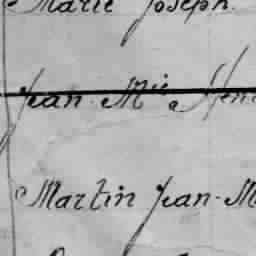 Marie Joseph.
Jean. M^ie
Martin Jean-M